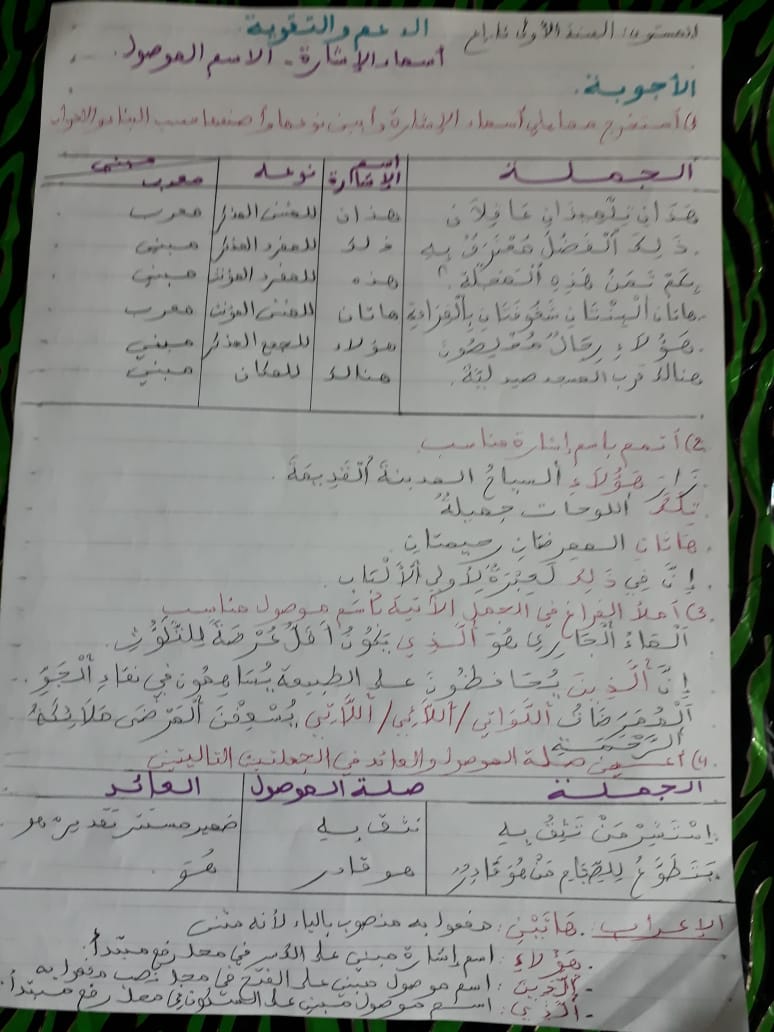 المستوى: السنة الأولى
الدعم والتقوية
أسماء الإشارة - الاسم الموصول.
الأجوبة.
1) أستخرج مما يلي أسماء الإشارة وأبين نوعها وأصنفها حسب البناء والإعراب
الجملة | اسم الإشارة | نوعه | مبني معرب
هَذَانِ تِلْمِيذَانِ عَاقِلَانِ | هذان | للمثنى المذكر | معرب
ذَلِكَ الْفَضْلُ مُعْتَرَفٌ بِهِ. | ذلك | للمفرد المذكر | مبني
بِكَمْ ثَمَنُ هَذِهِ الْمِحْفَظَةِ؟ | هذه | للمفرد المؤنث | مبني
هاتان الْبِنْتَانِ شَغُوفَتَانِ بِالْقِرَاءَةِ | هاتان | للمثنى المؤنث | معرب
هَؤُلَاءِ رِجَالٌ مُخْلِصُونَ. | هؤلاء | للجمع المذكر | مبني
هنالك قرب المسجد صيدلية. | هنالك | للمكان | مبني
2) أتمم باسم إشارة مناسب
زَارَ هَؤُلَاءِ السياحُ المدينةَ الْقَدِيمَةَ.
تِلْكَ اللوحات جميلةٌ
هَاتَانِ الممرضتانِ رحيمتانِ.
إِنَّ فِي ذَلِكَ لَعِبْرَةً لِأُولِي الْأَلْبَابِ.
3) أملأ الفراغ في الجمل الآتية باسم موصول مناسب
الْمَاءُ الْجَارِي هُوَ الَّذِي يَكُونُ أَقَلَّ عُرْضَةً لِلتَّلَوُّثِ.
إِنَّ الَّذِينَ يُحَافِظُونَ على الطبيعة يُسَاهِمُونَ في نقاءِ الْجَوِّ.
الْمُمَرِّضَاتُ اللَّوَاتِي/اللَّائِي/اللَّاتِي يُسْعِفْنَ الْمَرْضَى مَلَائِكَةُ
الرَّحْمَةِ
4) أعين صلة الموصول والعائد في الجملتين التاليتين
الجملة | صلة الموصول | العائد
اِسْتَشِرْ مَنْ تَثِقُ بِهِ | تثق به | ضمير مستتر تقديره هو
يَتَطَوَّعُ لِلصِّيَامِ مَنْ هُوَ قَادِرٌ | هو قادر | هُوَ
الإعراب: هَاتَيْنِ: مفعول به منصوب بالياء لأنه مثنى
- هَؤُلَاءِ: اسم إشارة مبني على الكسر في محل رفع مبتدأ.
- الَّذِينَ: اسم موصول مبني على الفتح في محل نصب مفعول به
- الَّذِي: اسم موصول مبني على السكون في محل رفع مبتدأ.